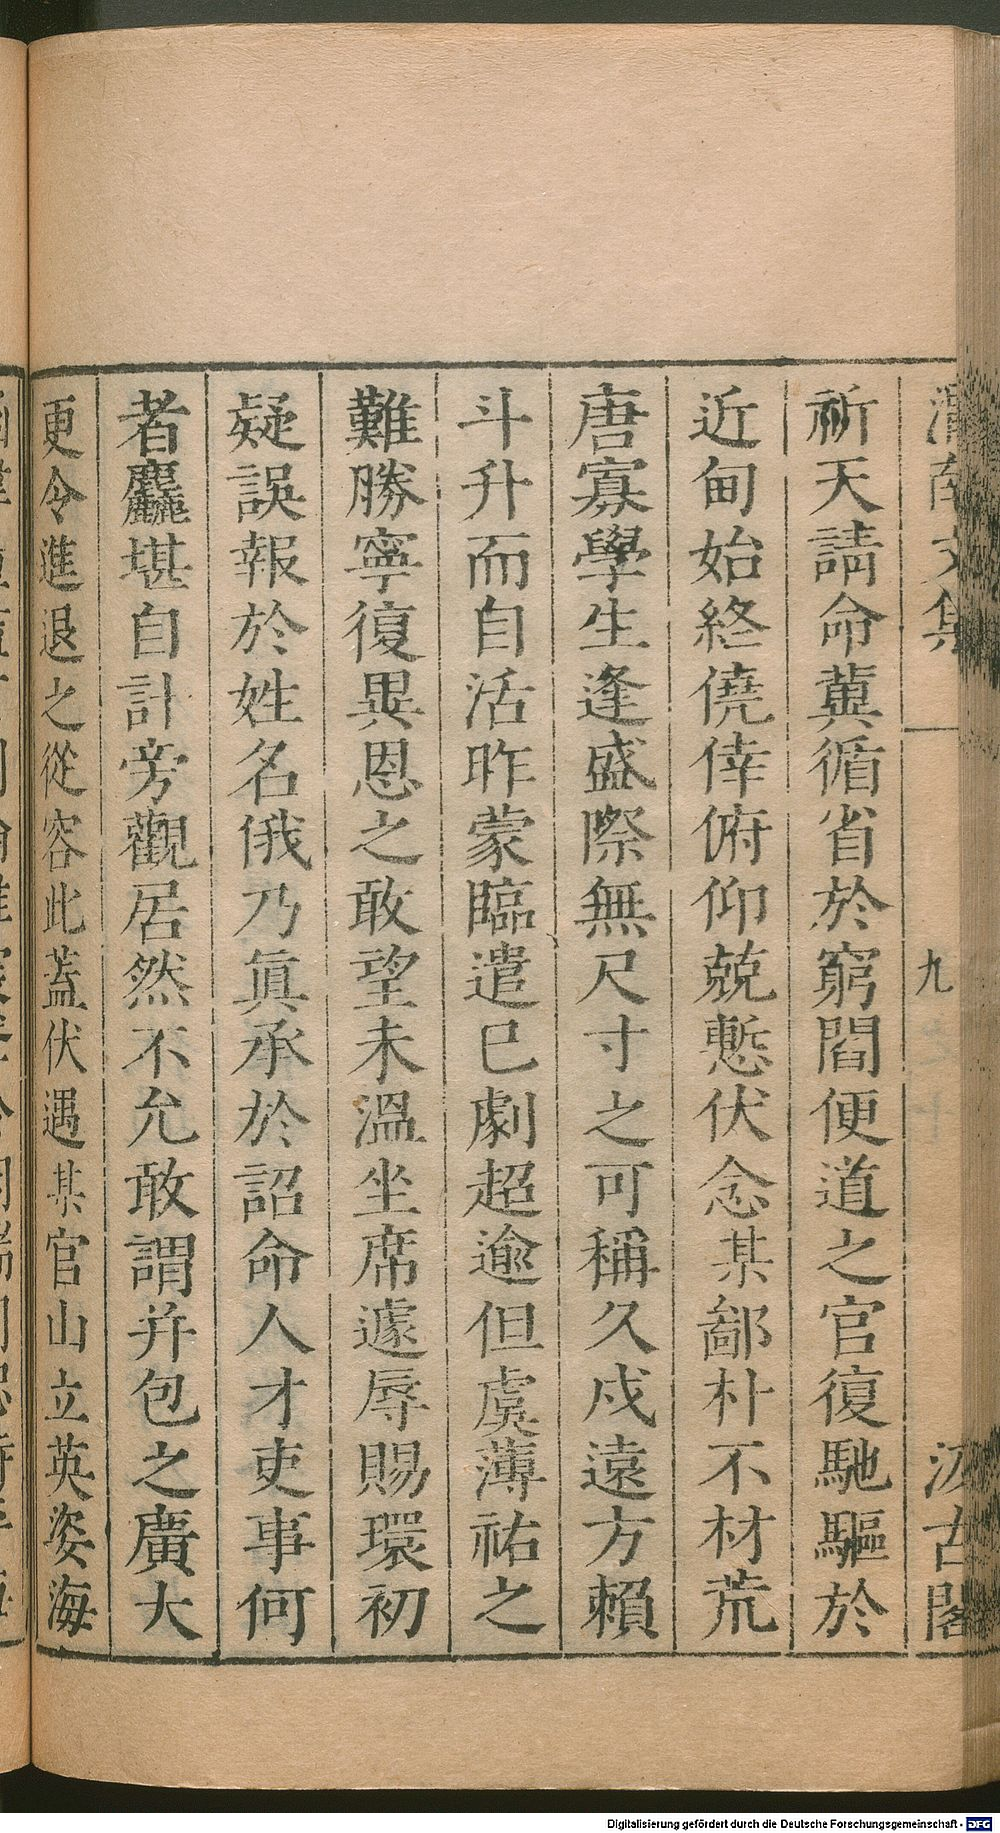 渭南文集
九
汲古閣
祈天請命冀循省於窮閻便道之官復馳驅於
近甸始終僥倖俯仰兢慙伏念某鄙朴不材荒
唐寡學生逢盛際無尺寸之可稱久戍遠方賴
斗升而自活昨蒙臨遣巳劇超逾但虞薄祐之
難勝寧復異恩之敢望未溫坐席遽辱賜環初
疑誤報於姓名俄乃眞承於詔命人才吏事何
者麤堪自計旁觀居然不允敢謂并包之廣大
更令進退之從容此蓋伏遇某官山立英姿海
Digitalisierung gefördert durch die Deutsche Forschungsgemeinschaft - DFG